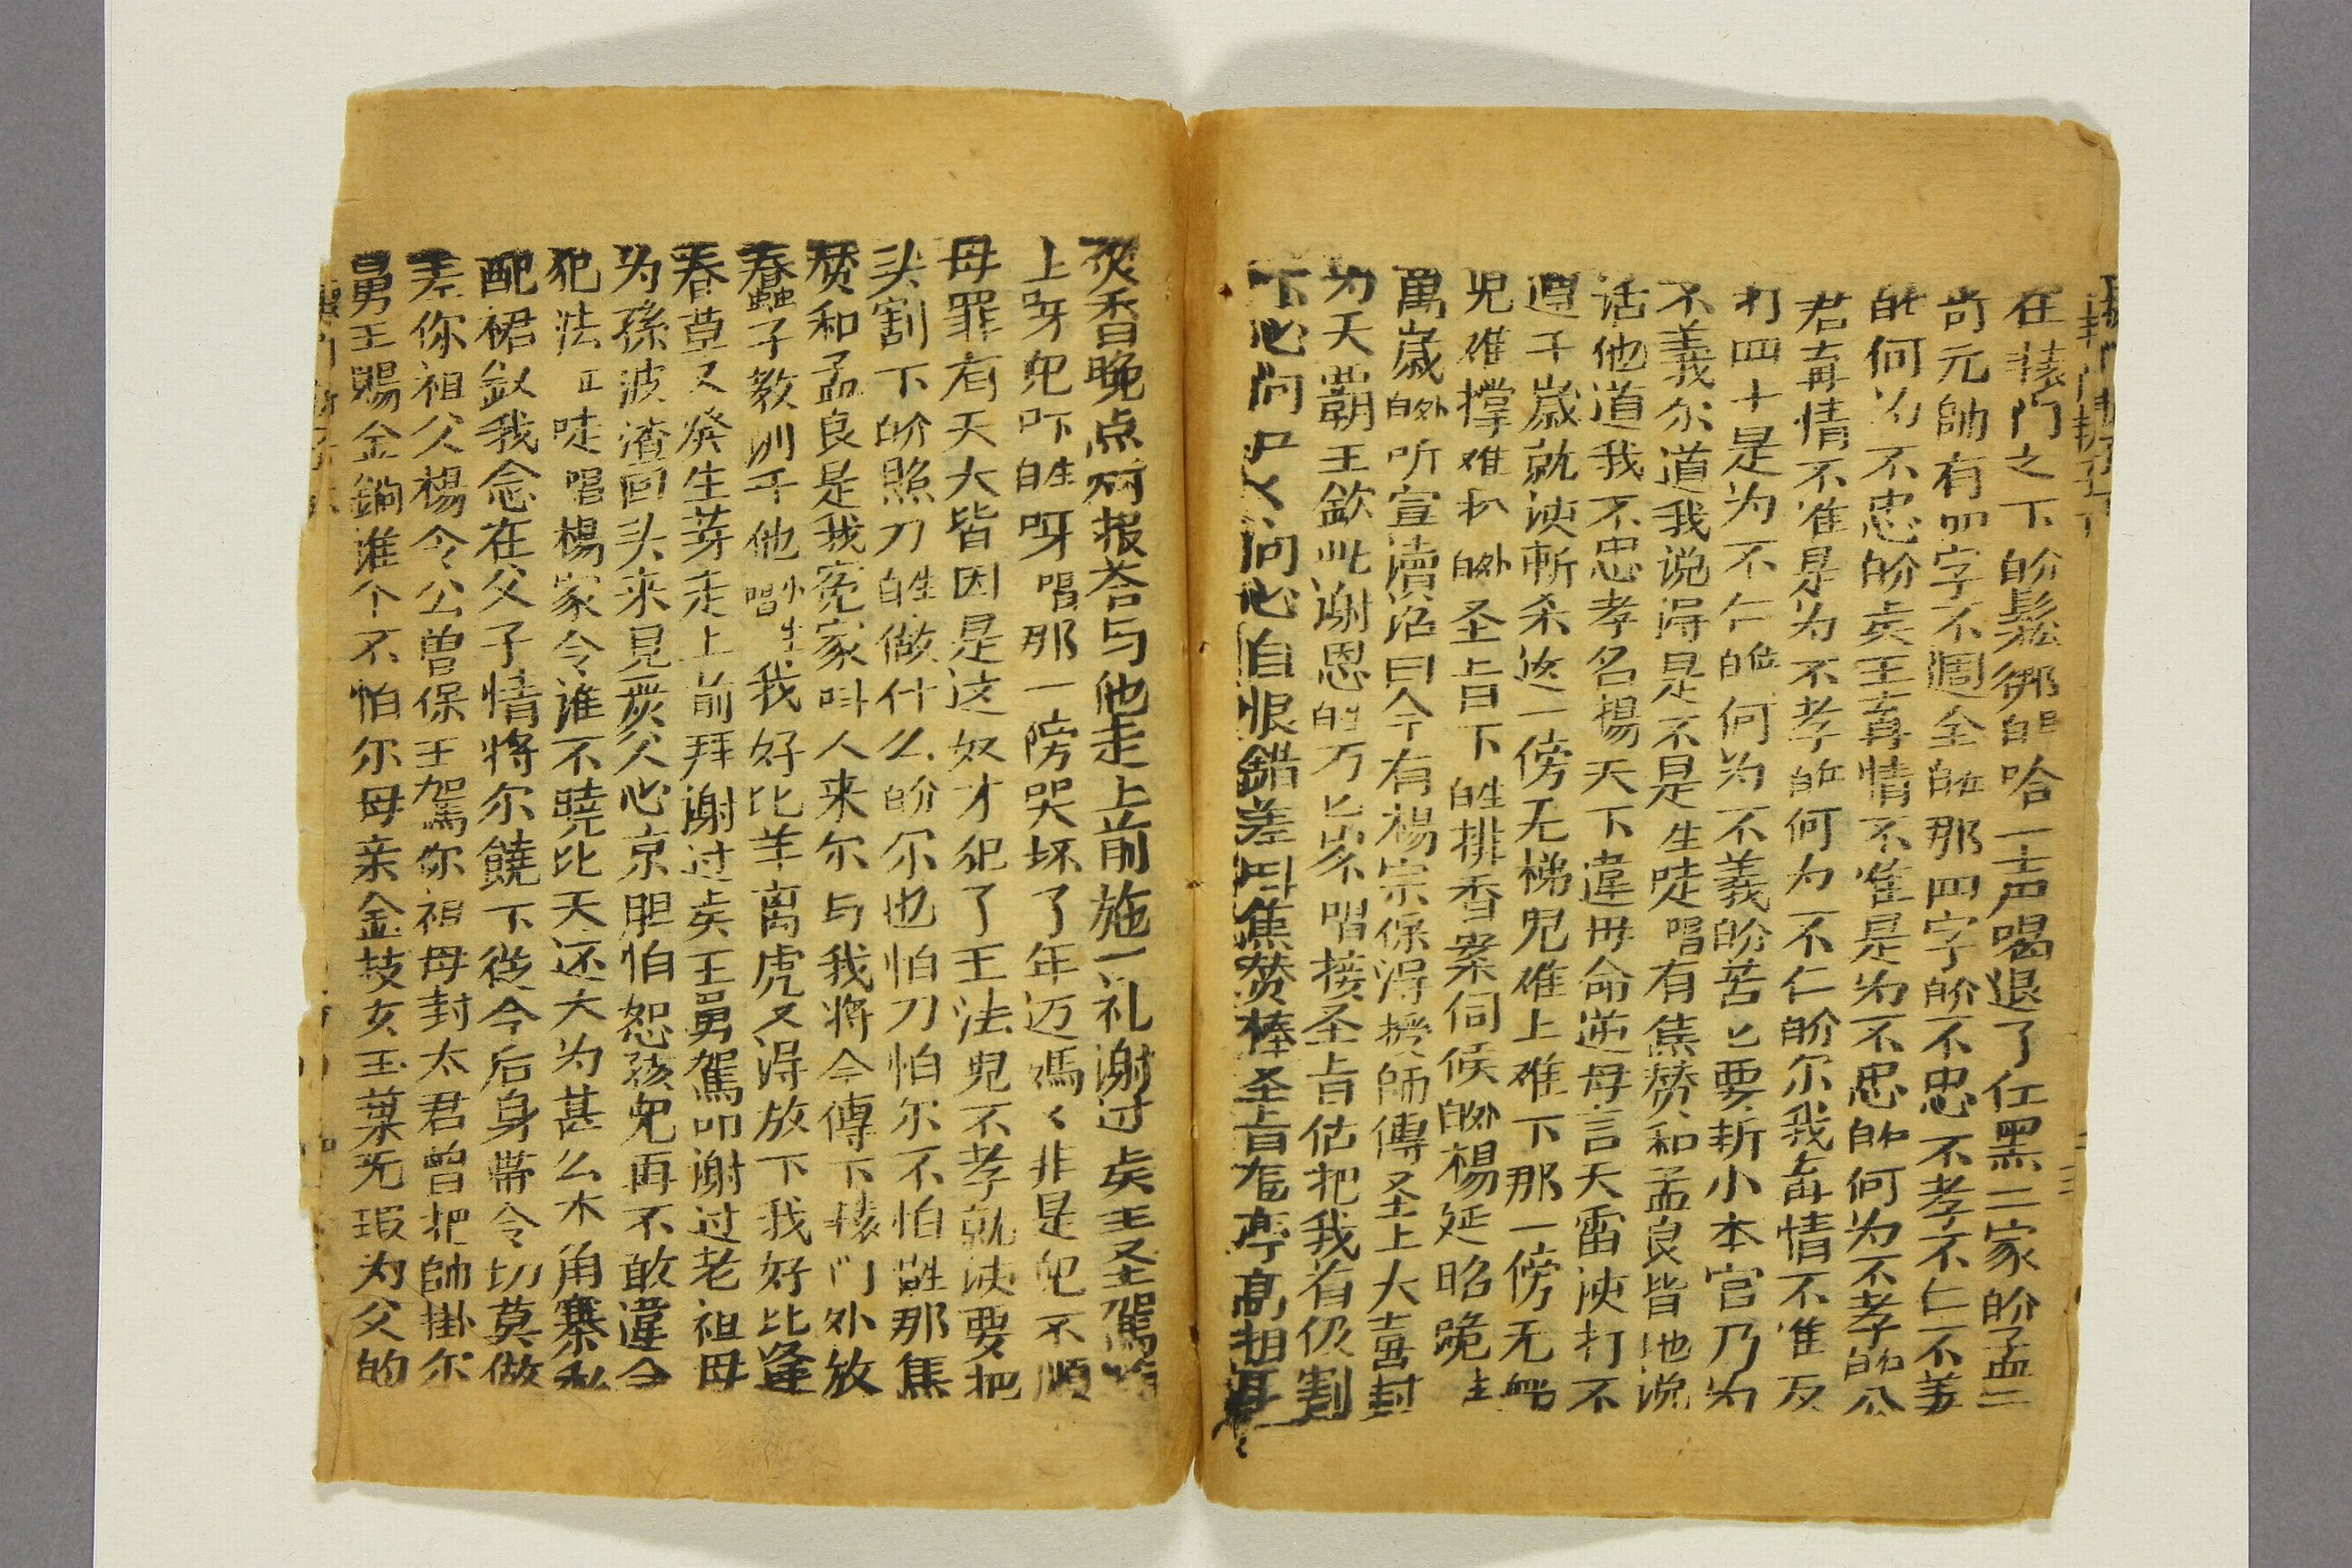 在轅門之下的鬆鄉白哈一声喝退了仁黑二家的孟二
苛元帥有四字不週全白那四字的不忠不孝不仁不義
何为不忠的矣王育情不准是为不忠的何为不孝的公
君育情不准是为不孝何为不仁的尔我育情不准反
打四十是为不仁何为不義的苦匕要斩小本官乃为
不義尔道我说淂是不是生唗唱有焦赞和孟良皆他说
话他道我不忠孝名揚天下違毋命逆母言天雷決打不
過千歲就決斬杀这一傍无梯児难上难下那一傍无
児难撑难扒外圣旨下生排香案伺候外楊延昭跪生
萬歲外听宣讀沼曰今有楊宗保淂授師傅圣上大喜封
为天霸王欽此謝恩生万岁唱接圣旨估把我首伋割
下心问口〻问心自恨錯差叫焦赞棒圣旨高
炭香晚点灯报荅与他走上前施一礼谢过矣王圣駕
上呀児吓生呀唱那一傍哭坏了年迈媽〻非是児不順
母罪有天大皆因是这奴才犯了王法児不孝就決要把
头割下的照刀生做什么的尔也怕刀怕尔不怕生那焦
赞和孟良是我冤家叫人来尔与我将令傳下轅门外放
春蠶子教训千他唱小生我好比羊离虎又淂放下我好比逢
春草又發生芽走上前拜谢过矣王舅駕叩谢过老祖母
为孫波渣回头来見嚴父心京胆怕恕孩児再不敢違令
犯法正唗唱楊家令谁不曉比天还大为甚么木角寨私
配裙釵我念在父子情将尔饒下從今后身帶令切莫做
差你祖父楊令公曾保王駕你祖母封太君曾把帥掛尔
舅王賜金鐧谁个不怕尔母亲金技女玉葉无瑕为父的